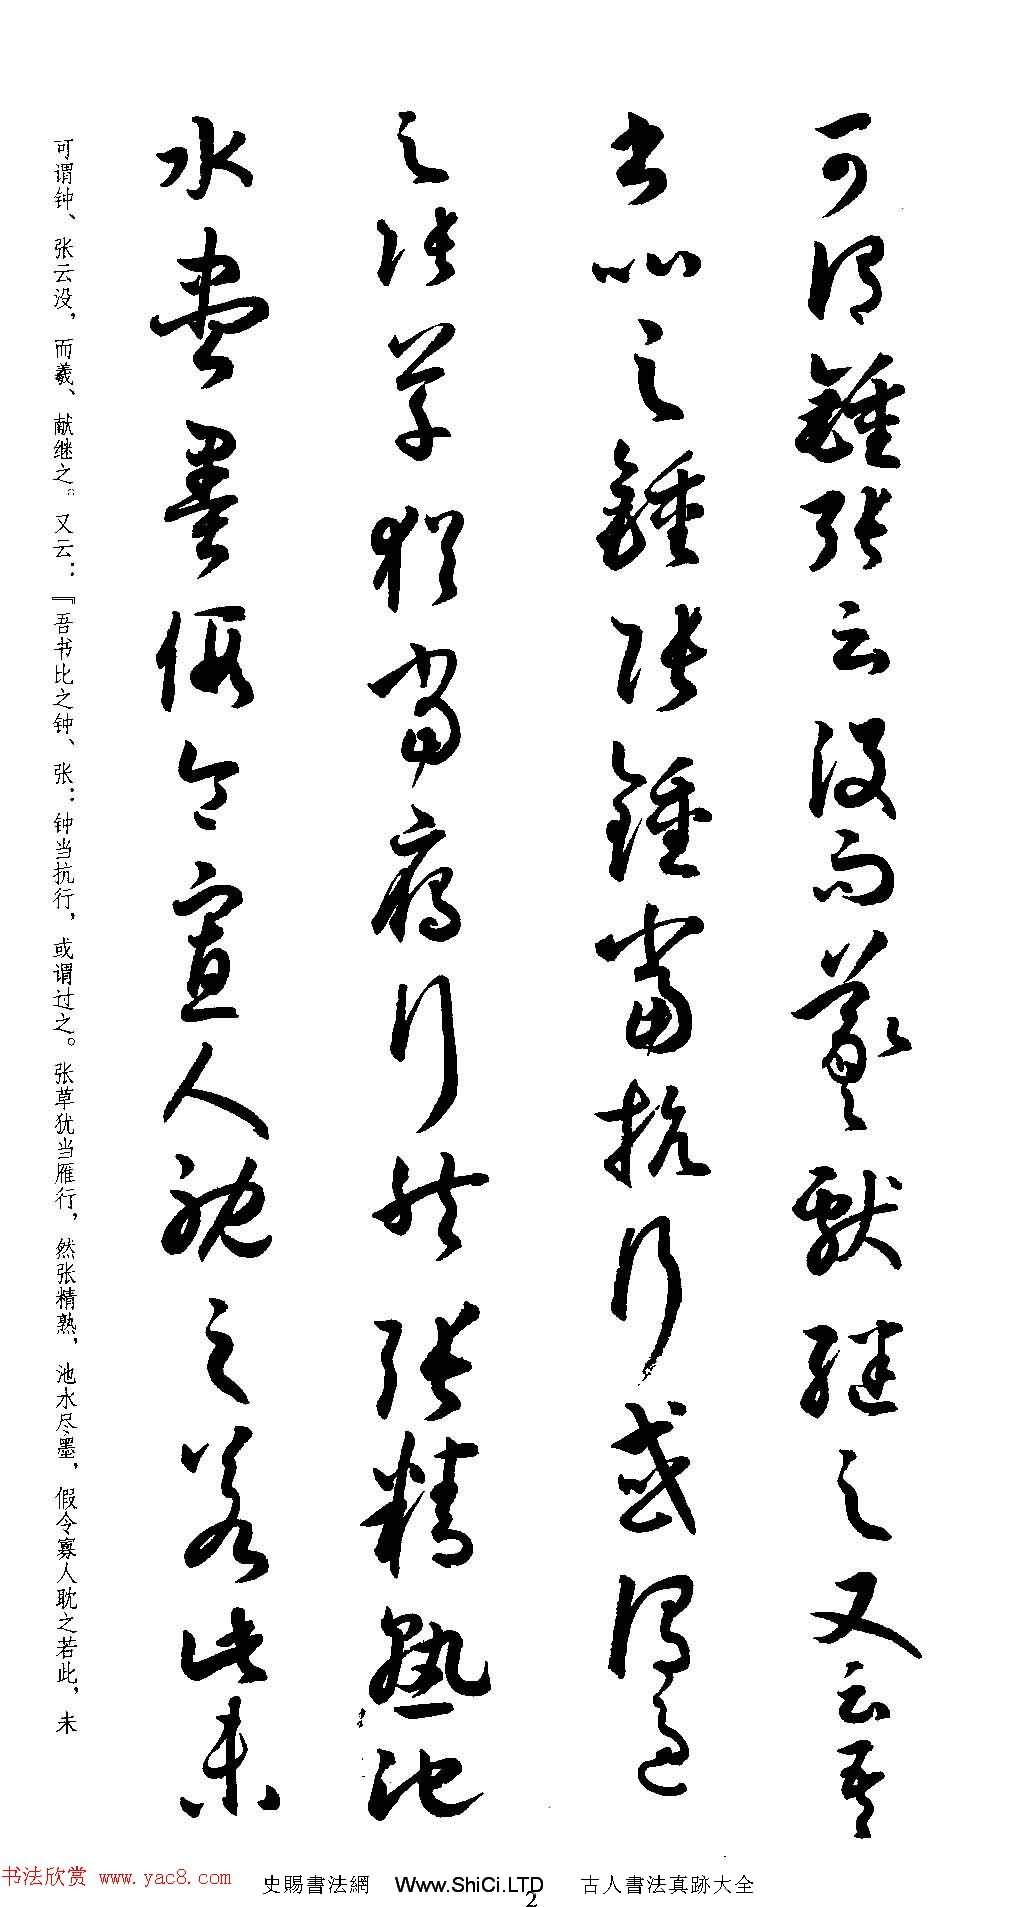 可谓鍾张云没而羲献继之又云吾
书比之鍾张鍾当抗行或谓过
之张草犹当雁行然张精熟池
水尽墨假令寡人耽之若此未
可谓钟、张云没，而羲、献继之。又云：『吾书比之钟、张：钟当抗行，或谓过之。张草犹当雁行，然张精熟，池水尽墨，假令寡人耽之若此，未
书法欣赏 www.yac8.com
史賜書法網 Www.ShiCi.LTD 古人書法真跡大全
2